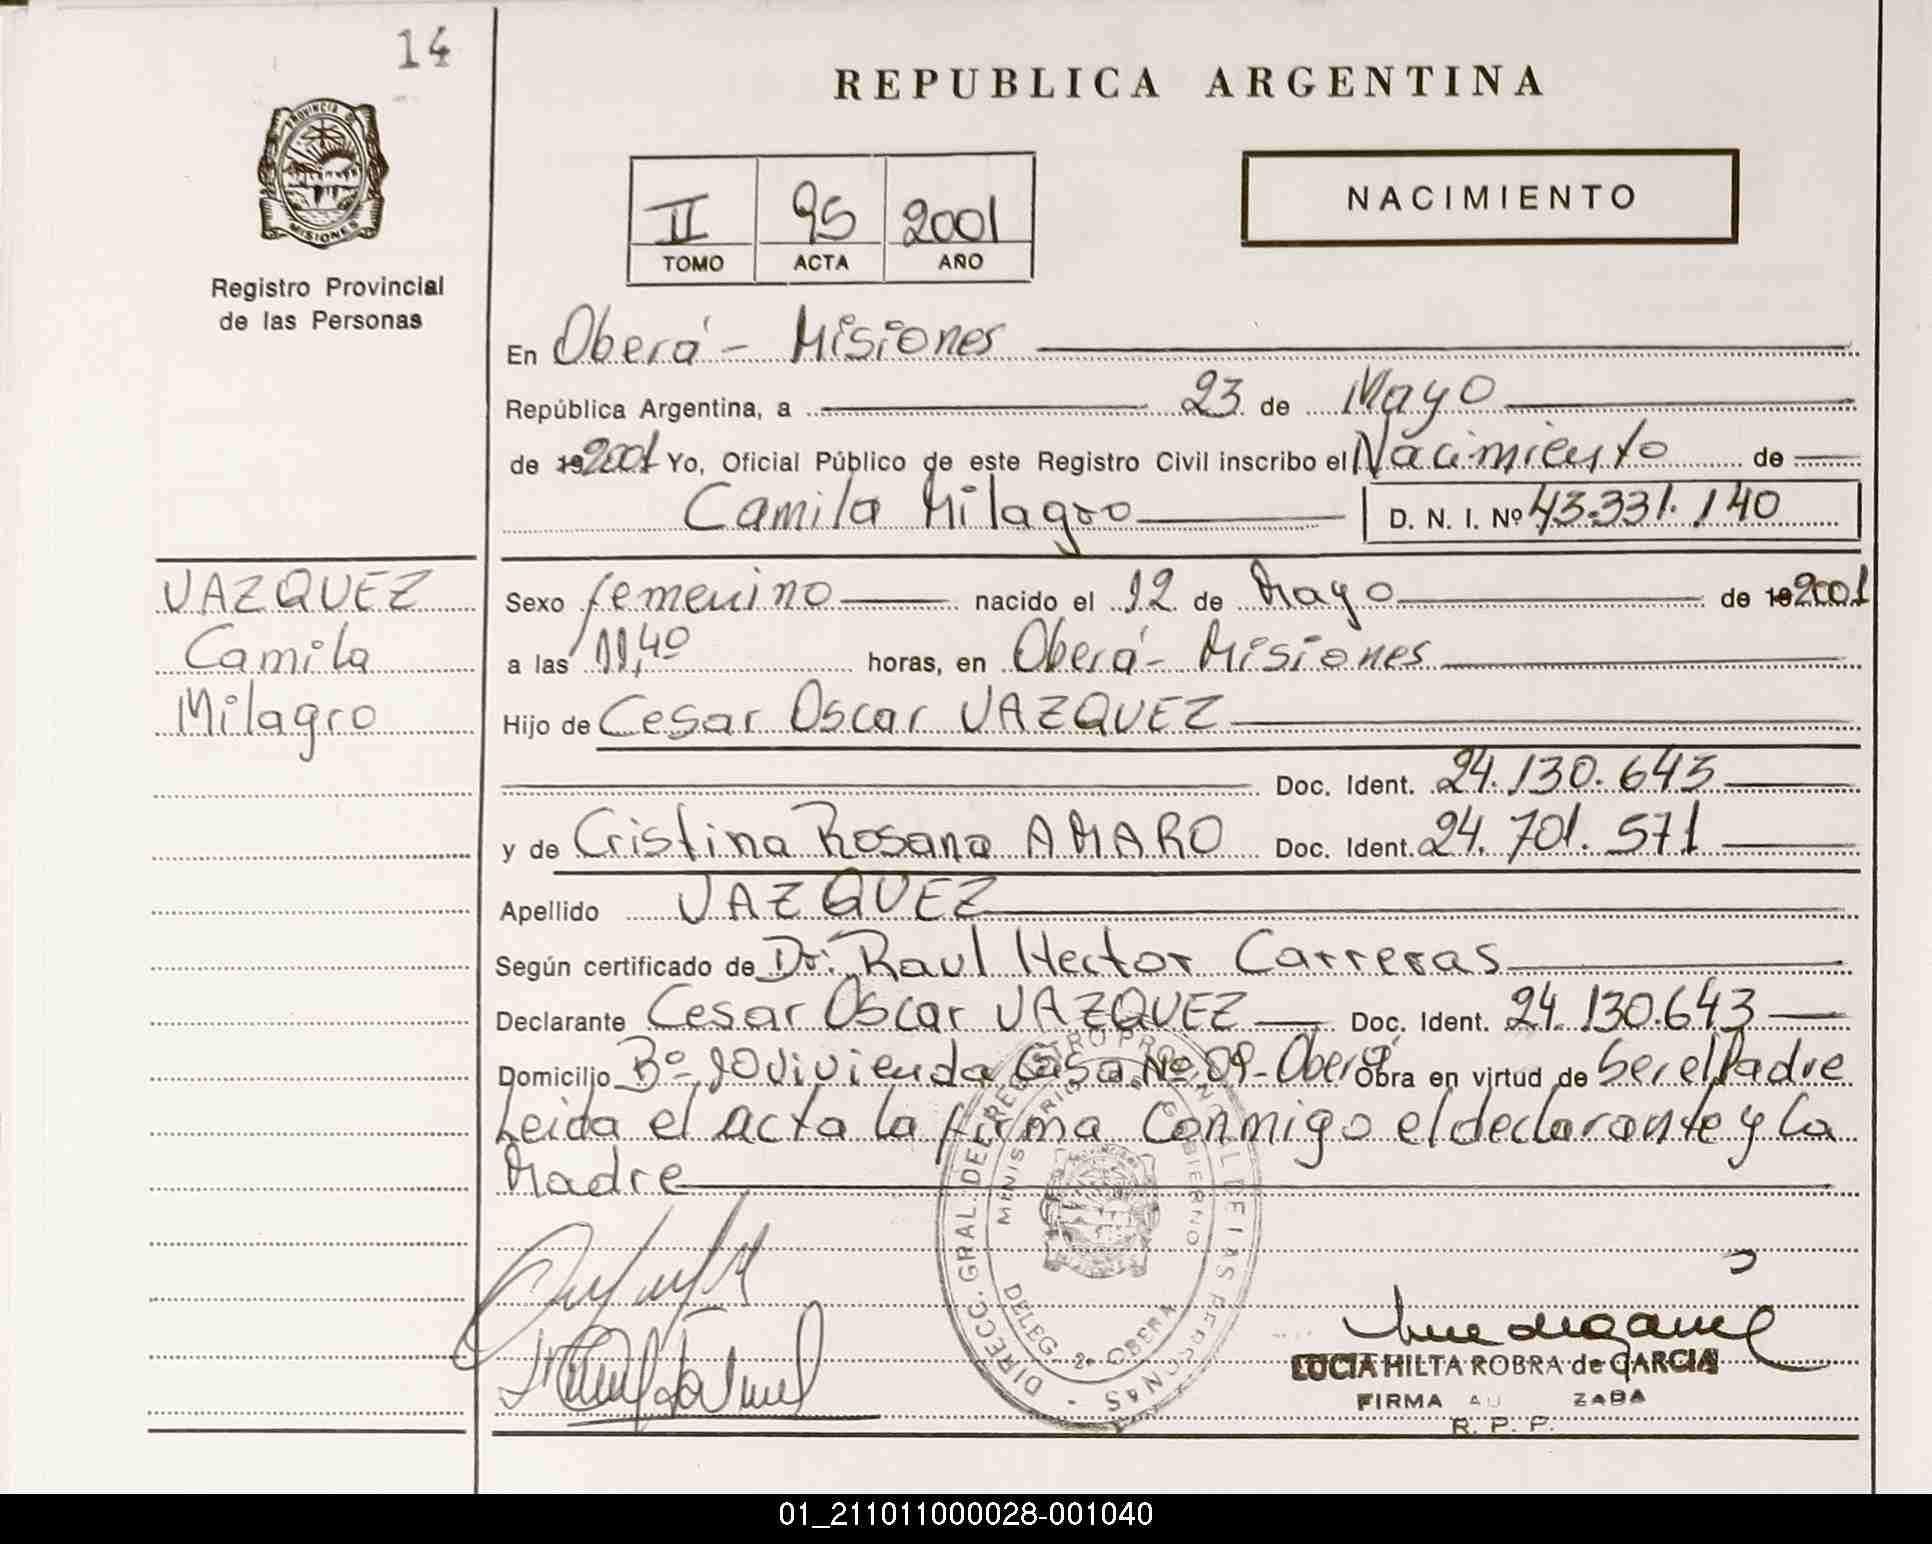 14
REPUBLICA ARGENTINA
PROVINCIA DE
MISIONES
NACIMIENTO
II 95 2001
TOMO ACTA AÑO
Registro Provincial
de las Personas
En Oberá - Misiones
República Argentina, a 23 de Mayo
de 19 2001 Yo, Oficial Público de este Registro Civil inscribo el Nacimiento de
Camila Milagro D. N. I. Nº 43.331.140
VAZQUEZ
Camila
Milagro
Sexo femenino nacido el 12 de Mayo de 19 2001
a las 11,40 horas, en Oberá - Misiones
Hijo de Cesar Oscar VAZQUEZ
Doc. Ident. 24.130.643
y de Cristina Rosana AMARO Doc. Ident. 24.701.571
Apellido VAZQUEZ
Según certificado de Dr. Raul Hector Carreras
Declarante Cesar Oscar VAZQUEZ Doc. Ident. 24.130.643
Domicilio Bº Vivienda Casa Nº 09 - Oberá Obra en virtud de Ser el Padre
Leida el acta la firma conmigo el declarante y la
Madre
DIRECC. GRAL. DE REGISTRO PROVINCIAL DE LAS PERSONAS
MINISTERIO DE GOBIERNO
DELEG. 2ª OBERA
LUCIA HILTA ROBRA de GARCIA
FIRMA AU ZADA
R. P. P.
01_211011000028-001040